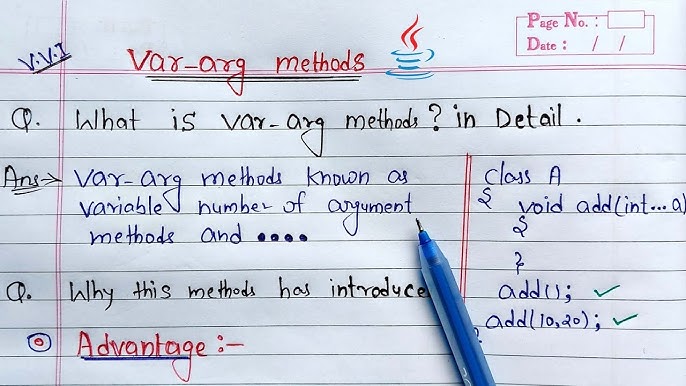 Page No. :
Date : / /
V.V.I
Var-arg methods
Q. What is var-arg methods? in Detail.
Ans→ Var-arg methods known as
variable number of argument
methods and ....
class A
{
void add(int...a)
{
}
add(); ✓
add(10,20); ✓
Q. Why this methods has introduce
Advantage :-